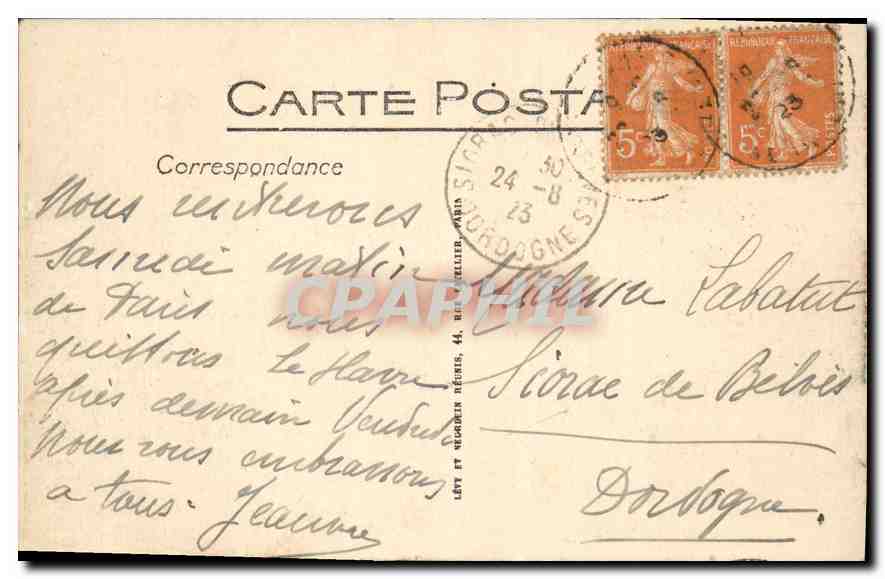 CARTE POSTA
Correspondance
Nous rentrerons
Samedi matin
de Paris nous
quittons le Havre
après demain Vendredi
Nous vous embrassons
a tous. Jeanne
Madame Labatut
Siorac de Belvès
Dordogne.
LÉVY ET NEURDEIN RÉUNIS, 44, RUE LETELLIER, PARIS
REPUBLIQUE FRANÇAISE
5c
POSTES
5c
SIORAC
30
24 -8
23
DORDOGNE
23
CPAPHIL